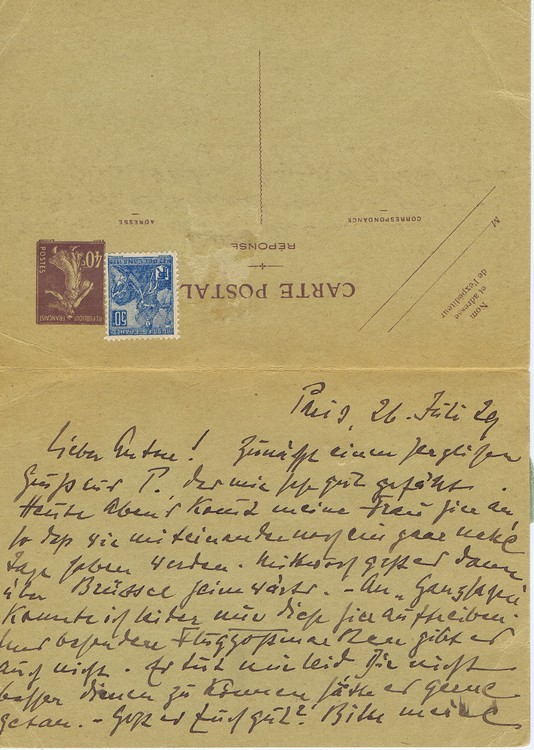 M
Nom
et adresse
de l'expéditeur
CORRESPONDANCE
ADRESSE
RÉPONSE
CARTE POSTAL
40c
POSTES
REPUBLIQUE FRANÇAISE
50
Paris, 26. Juli 29
Lieber Anton! Zunächst einen herzlichen
Gruß aus P., der mir sehr gut gefällt.
Heute Abend kommt meine Frau hier an,
so daß wir miteinander noch ein paar nette
Tage haben werden. Mittwoch geht es dann
über Brüssel heimwärts. – An „Ganzsachen
konnte ich leider nur diese hier auftreiben.
Und besondere Flugpostmarken gibt es
auch nicht. Es tut mir leid Sie nicht
besser dienen zu können, hätte es gerne
getan. – Geht es Euch gut? Bitte meine